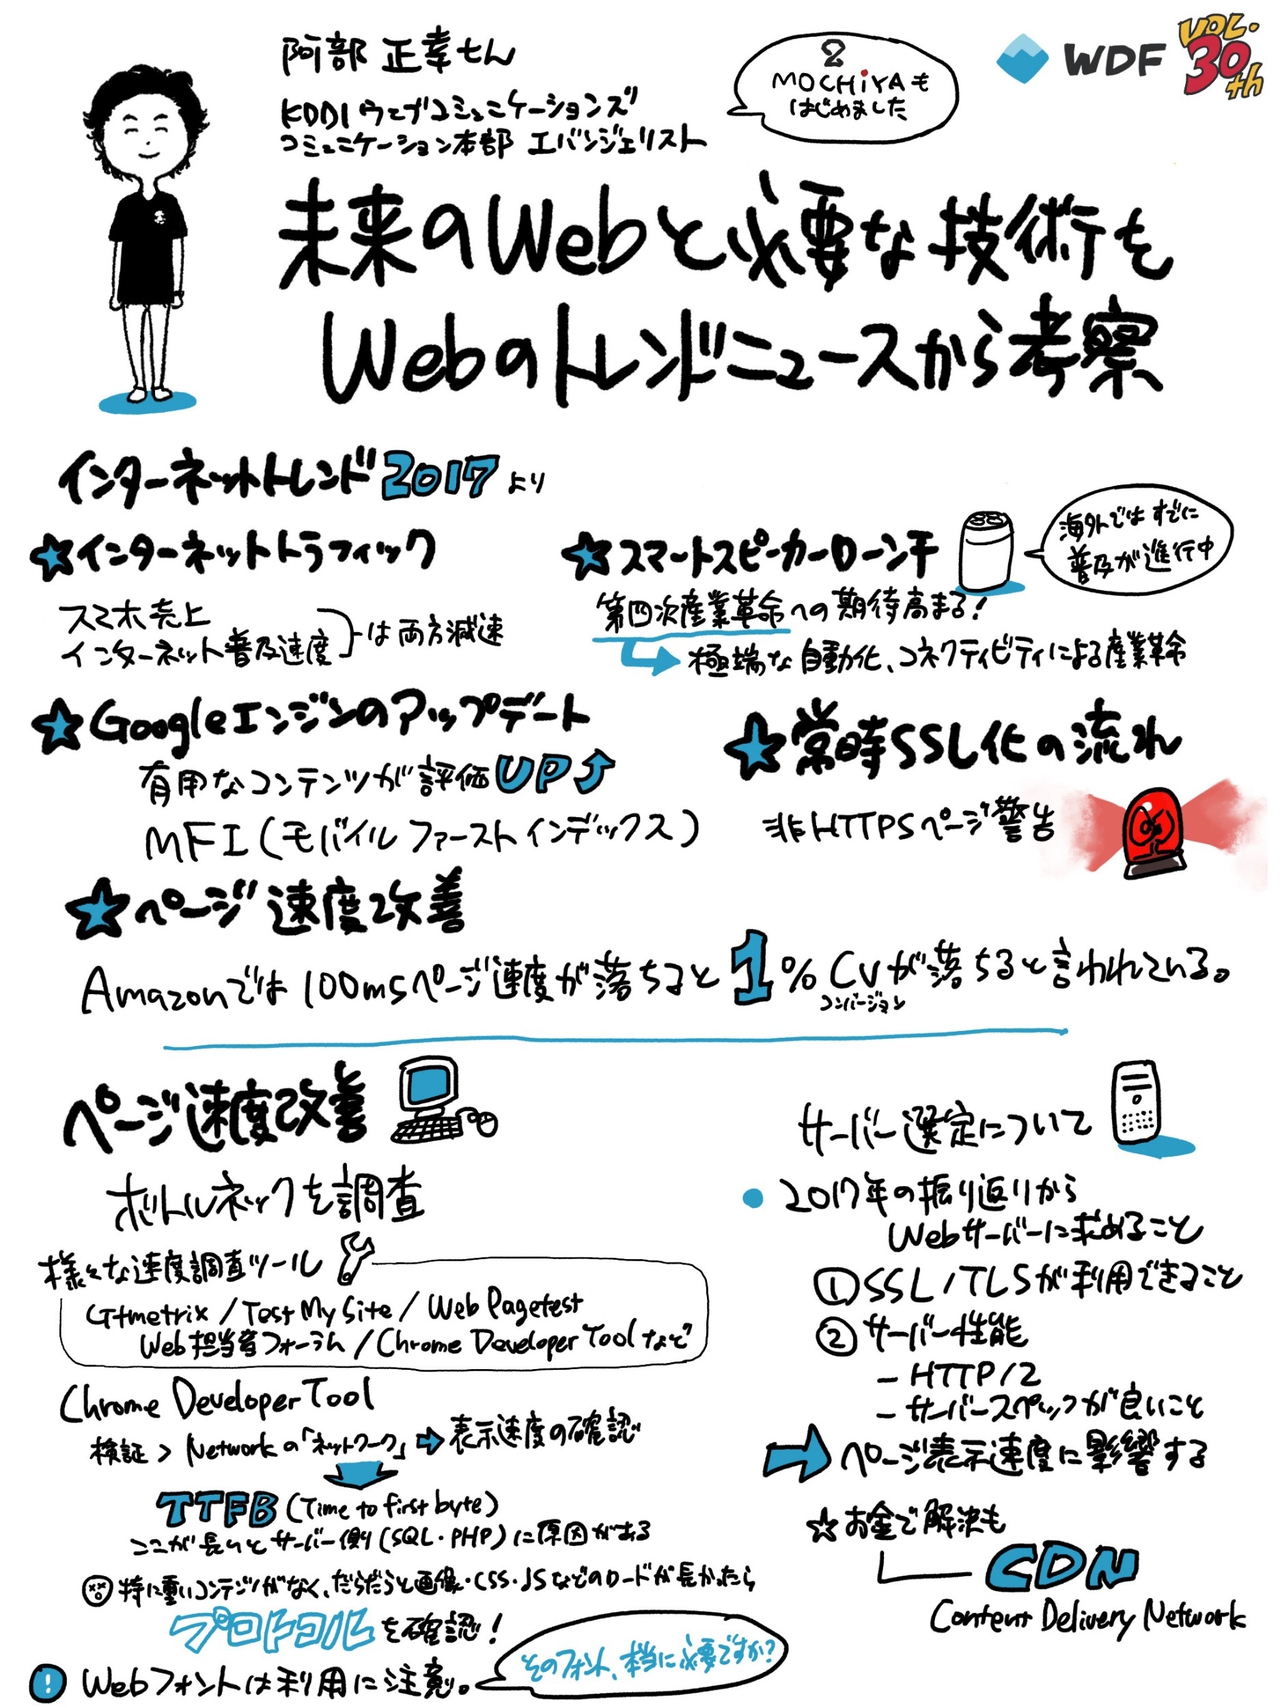 阿部 正幸さん
KDDIウェブコミュニケーションズ
コミュニケーション本部 エバンジェリスト
MOCHIYAも
はじめました
WDF
VOL.
30th
未来のWebと必要な技術を
Webのトレンドニュースから考察
インターネットトレンド2017より
インターネットトラフィック
スマホ売上
インターネット普及速度
は両方減速
スマートスピーカーローンチ
海外ではすでに
普及が進行中
第四次産業革命への期待高まる!
極端な自動化、コネクティビティによる産業革命
Googleエンジンのアップデート
有用なコンテンツが評価UP
MFI(モバイルファーストインデックス)
常時SSL化の流れ
非HTTPSページ警告
ページ速度改善
Amazonでは100msページ速度が落ちると1%CVが落ちると言われている。
コンバージョン
ページ速度改善
ボトルネックを調査
様々な速度調査ツール
Gtmetrix/Test My Site/Web Pagetest
Web担当者フォーラム/Chrome Developer Toolなど
Chrome Developer Tool
検証 > Networkの「ネットワーク」→表示速度の確認
TTFB(Time to first byte)
ここが長いとサーバー側(SQL・PHP)に原因がある
特に重いコンテンツがなく、だらだらと画像・CSS・JSなどのロードが長かったら
プロトコルを確認!
! Webフォントは利用に注意。
そのフォント、本当に必要ですか?
サーバー選定について
2017年の振り返りから
Webサーバーに求めること
①SSL/TLSが利用できること
②サーバー性能
- HTTP/2
- サーバースペックが良いこと
→ページ表示速度に影響する
☆お金で解決も
CDN
Content Delivery Network